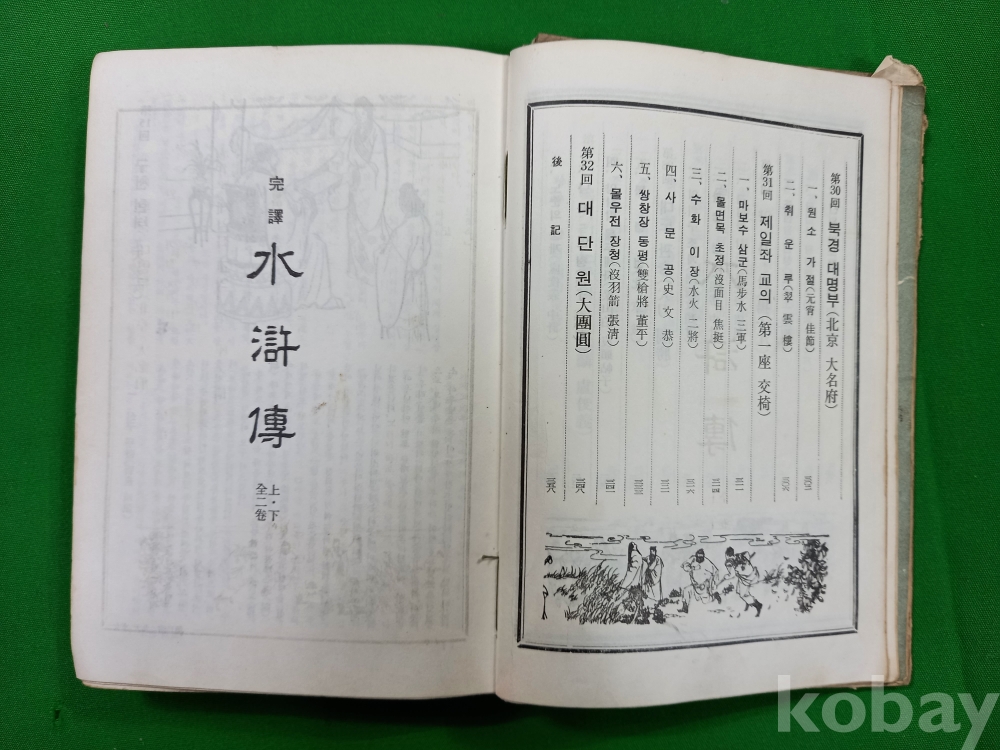 第30回 북경 대명부(北京 大名府)
一、원소 가절(元宵 佳節)
二、취운루(翠雲樓)
第31回 제일좌 교의(第一座 交椅)
一、마보수 삼군(馬步水 三軍)
二、몰면목 초정(沒面目 焦挺)
三、수화 이장(水火 二將)
四、사문공(史文恭)
五、쌍창장 동평(雙槍將 董平)
六、몰우전 장청(沒羽箭 張淸)
第32回 대단원(大團圓)
後記
完譯
水滸傳
上·下
全二卷
kobay